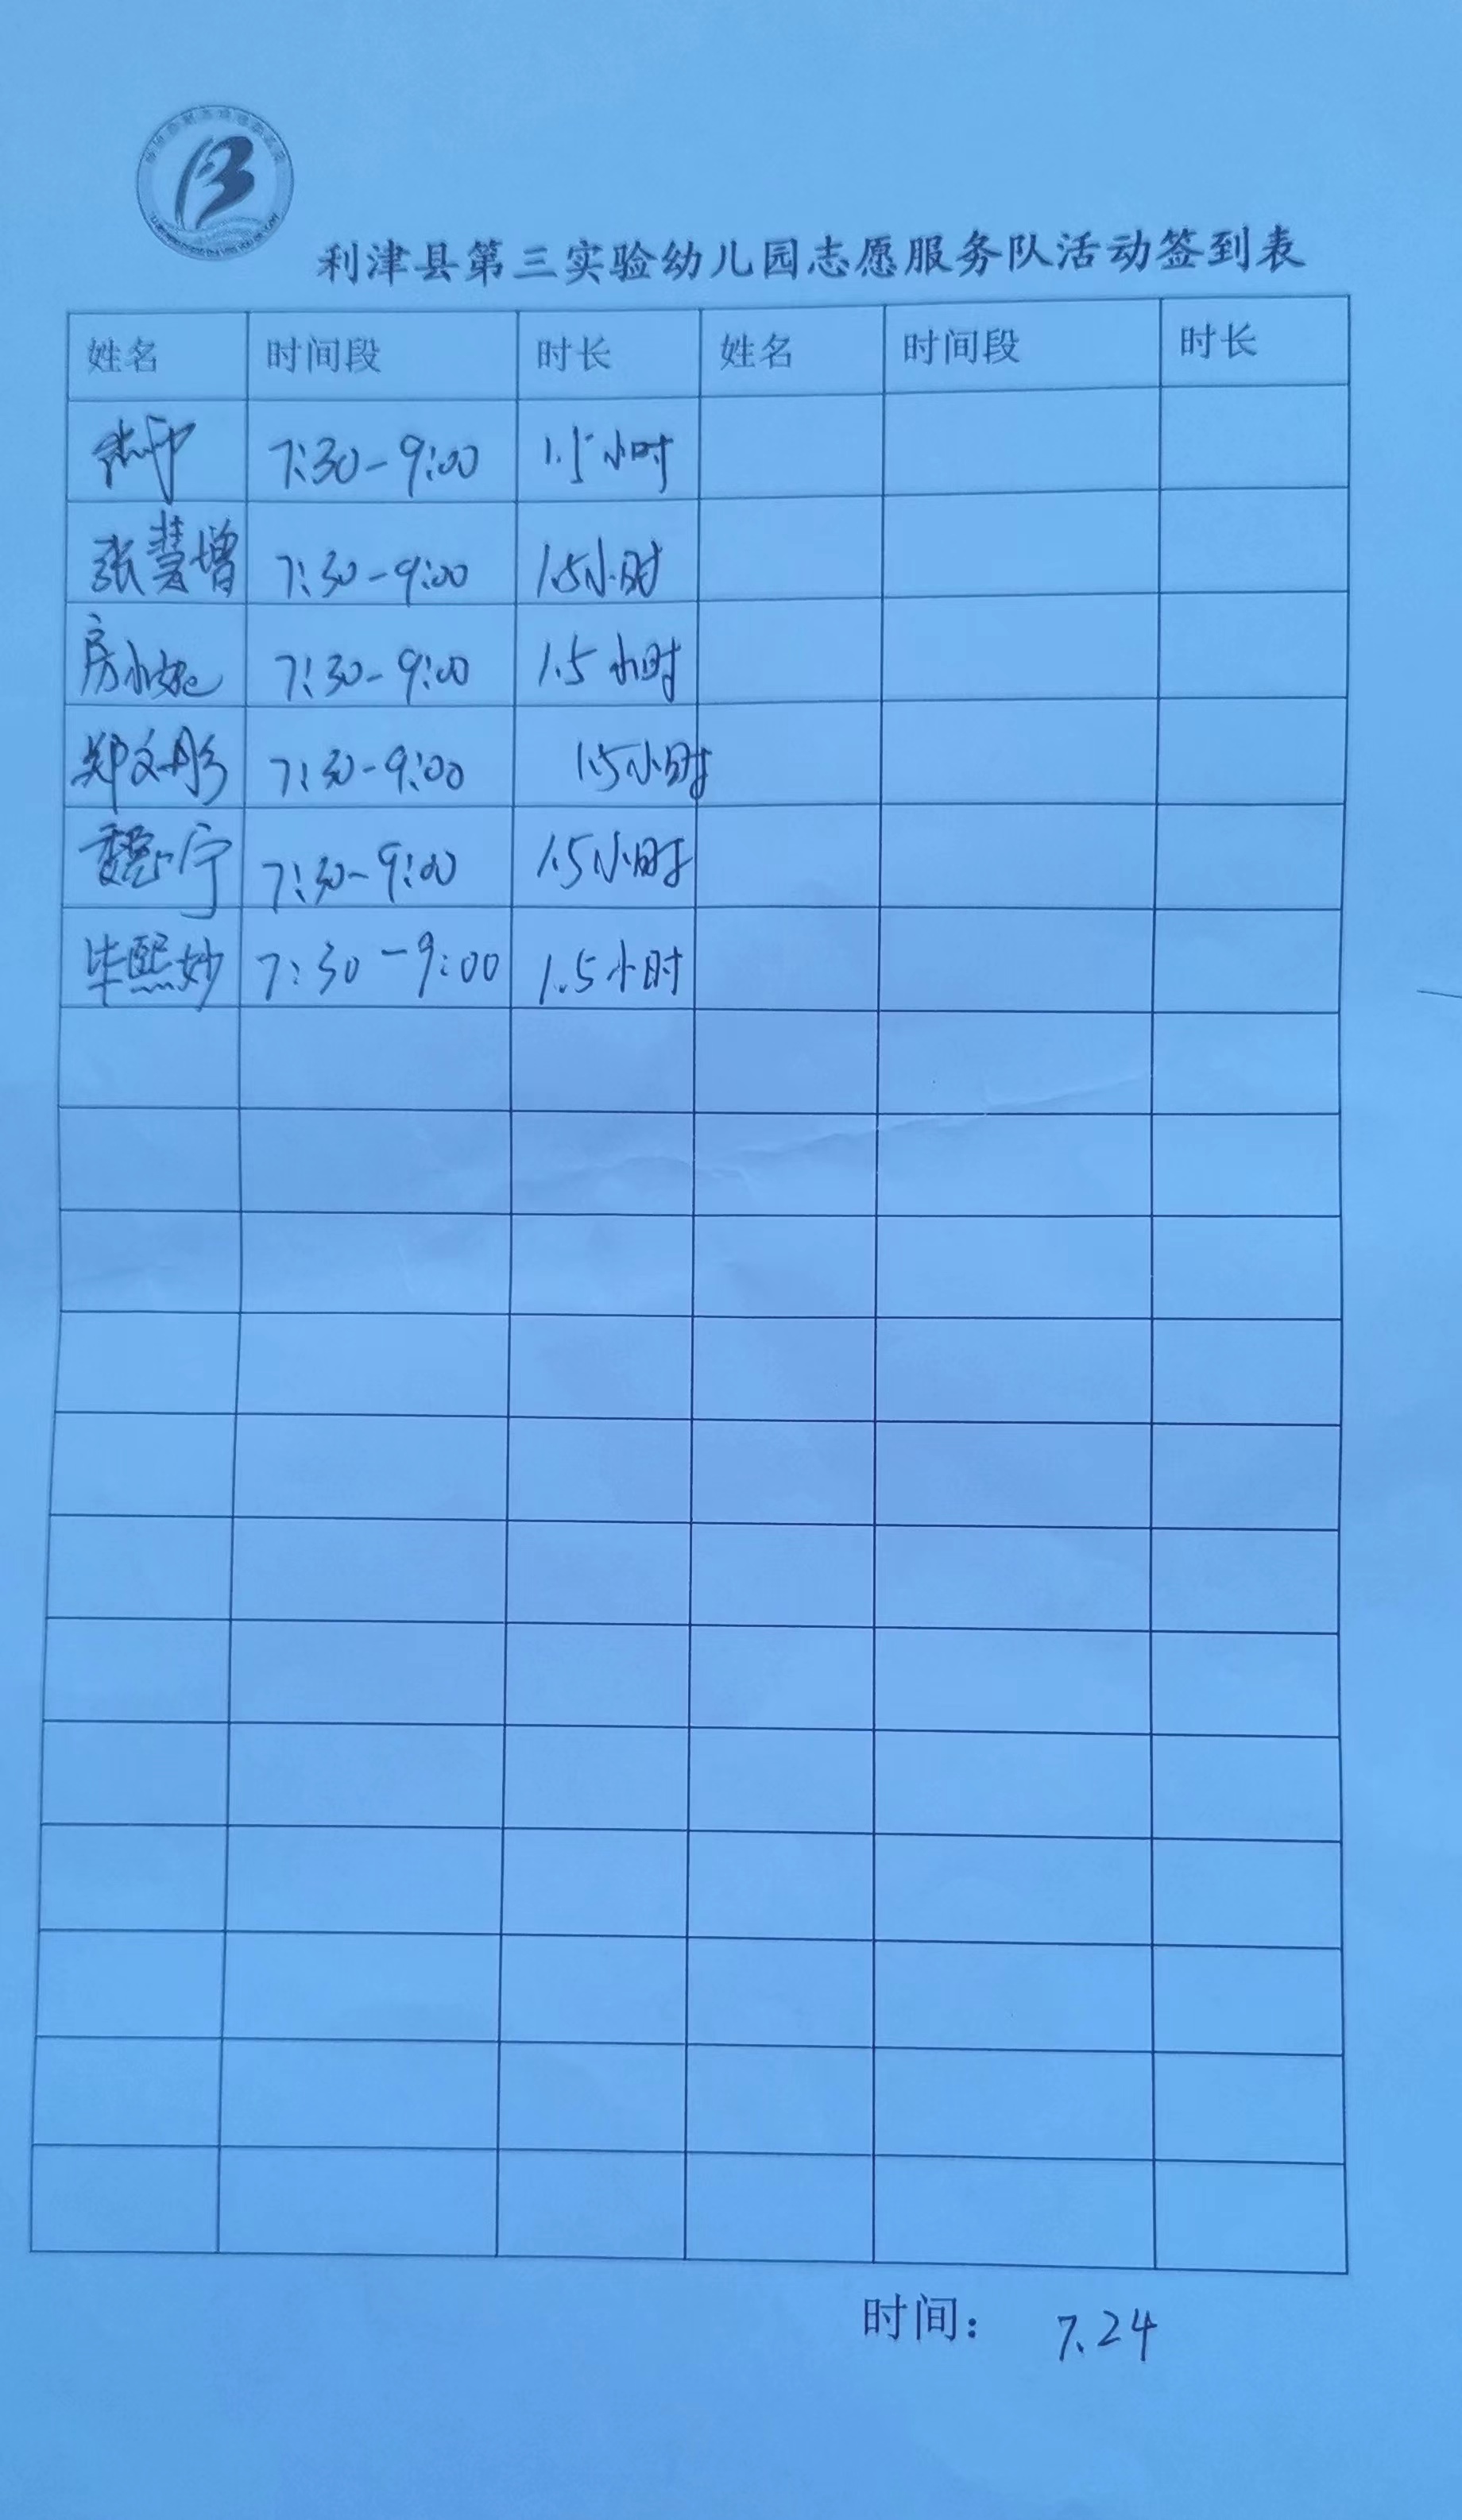 利津县第三实验幼儿园志愿服务队活动签到表
姓名 时间段 时长 姓名 时间段 时长
7:30-9:00 1.5小时
张慧增 7:30-9:00 1.5小时
房小 7:30-9:00 1.5小时
郑文彤 7:30-9:00 1.5小时
魏宁 7:30-9:00 1.5小时
毕熙妙 7:30-9:00 1.5小时
时间: 7.24